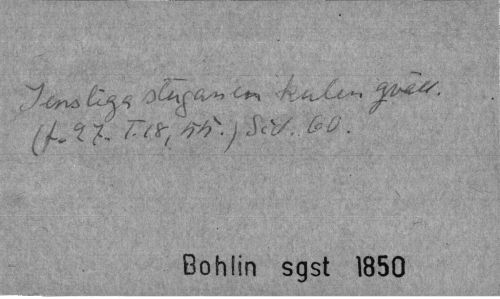 I ensliga stugan en kulen qväll.
(f. 27. T. 18, 55.) Sid. 60.
Bohlin sgst 1850